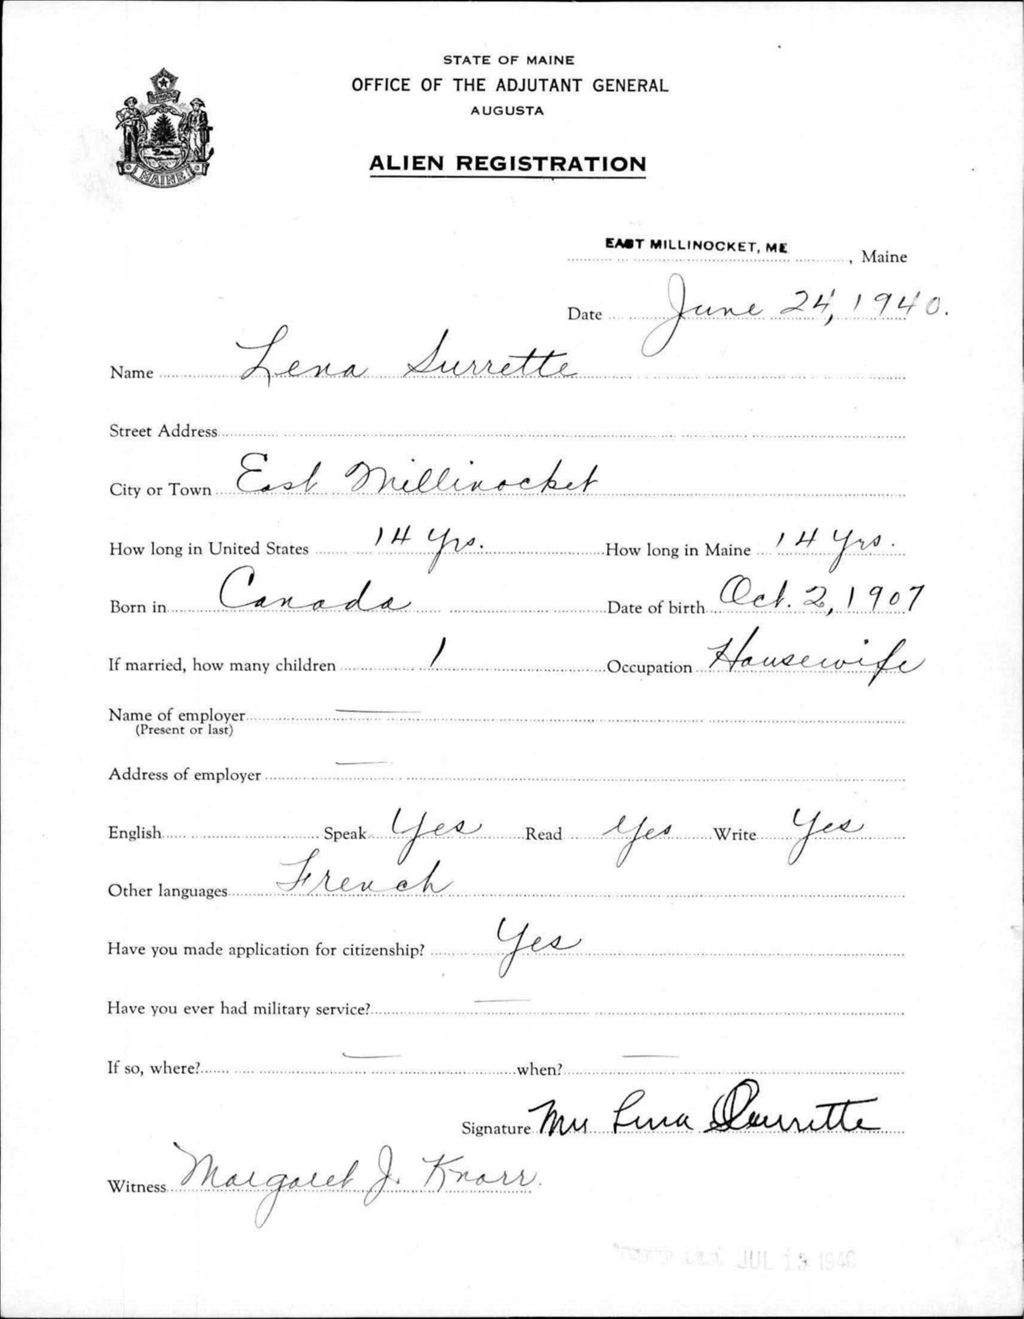 STATE OF MAINE
OFFICE OF THE ADJUTANT GENERAL
AUGUSTA
ALIEN REGISTRATION
MAINE
EAST MILLINOCKET, ME , Maine
Date June 24, 1940.
Name Lena Surrette
Street Address
City or Town East Millinocket
How long in United States 14 yrs. How long in Maine 14 yrs.
Born in Canada Date of birth Oct. 2, 1907
If married, how many children 1 Occupation Housewife
Name of employer —
(Present or last)
Address of employer —
English Speak Yes Read Yes Write Yes
Other languages French
Have you made application for citizenship? Yes
Have you ever had military service? —
If so, where? — when? —
Signature Mrs Lena Surrette
Witness Margaret J. Knorr.
JUL 13 1940